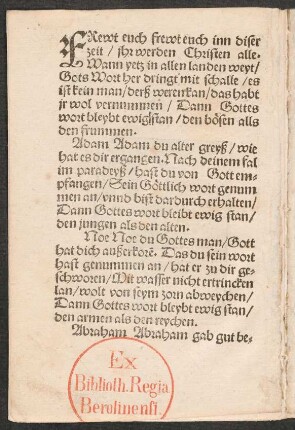 FRewt euch frewt euch inn diser
zeit / jhr werden Christen alle.
Wann yetz in allen landen weyt /
Gots Wort her dringt mit schalle / es
ist kein man / derß weren kan / das habt
jr wol vernummen / Dann Gottes
wort bleybt ewig stan / den bösen alls
den frummen.
Adam Adam du alter greyß / wie
hat es dir ergangen. Nach deinem fal
im paradeyß / hast du von Gott em=
pfangen / Sein Göttlich wort genum
men an / vnnd bist dardurch erhalten /
Dann Gottes wort bleibt ewig stan /
den jungen als den alten.
Noe Noe du Gottes man / Gott
hat dich außerkorē. Das du sein wort
hast genummen an / hat er zu dir ge=
schworen / Mit wasser nicht ertrincken
lan / wolt von seym zorn abweychen /
Dann Gottes wort bleybt ewig stan /
den armen als den reychen.
Abraham Abraham gab gut be=
Ex
Biblioth. Regia
Berolinensi.